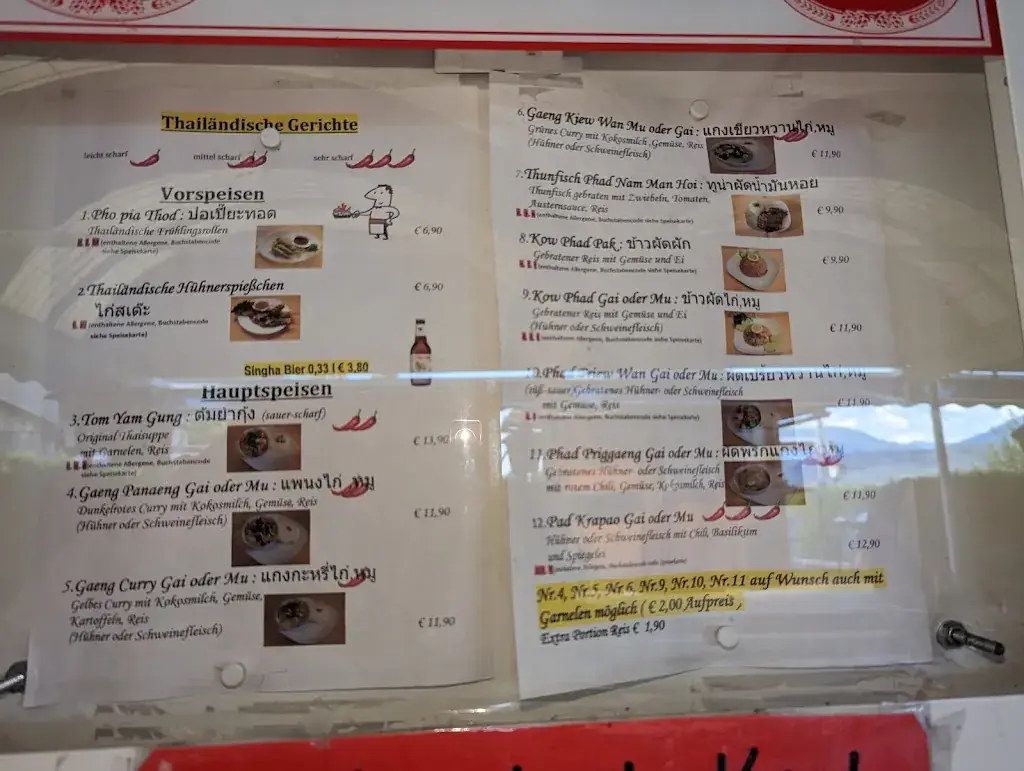 Thailändische Gerichte
leicht scharf mittel scharf sehr scharf
Vorspeisen
1.Pho pia Thod : ปอเปี๊ยะทอด
Thailändische Frühlingsrollen
€ 6,90
(enthaltene Allergene, Buchstabencode
siehe Speisekarte)
2.Thailändische Hühnerspießchen
€ 6,90
ไก่สเต๊ะ
(enthaltene Allergene, Buchstabencode
siehe Speisekarte)
Singha Bier 0,33 l € 3,80
Hauptspeisen
3.Tom Yam Gung : ต้มยำกุ้ง (sauer-scharf)
Original Thaisuppe
mit Garnelen, Reis
€ 13,90
(enthaltene Allergene, Buchstabencode
siehe Speisekarte)
4.Gaeng Panaeng Gai oder Mu : แพนงไก่ หมู
Dunkelrotes Curry mit Kokosmilch, Gemüse, Reis
(Hühner oder Schweinefleisch)
€ 11,90
5.Gaeng Curry Gai oder Mu : แกงกะหรี่ไก่,หมู
Gelbes Curry mit Kokosmilch, Gemüse,
Kartoffeln, Reis
(Hühner oder Schweinefleisch)
€ 11,90
6.Gaeng Kiew Wan Mu oder Gai : แกงเขียวหวานไก่,หมู
Grünes Curry mit Kokosmilch ,Gemüse, Reis
(Hühner oder Schweinefleisch)
€ 11,90
7.Thunfisch Phad Nam Man Hoi : ทูน่าผัดน้ำมันหอย
Thunfisch gebraten mit Zwiebeln, Tomaten,
Austernsauce, Reis
€ 9,90
(enthaltene Allergene, Buchstabencode siehe Speisekarte)
8.Kow Phad Pak : ข้าวผัดผัก
Gebratener Reis mit Gemüse und Ei
€ 9,90
(enthaltene Allergene, Buchstabencode siehe Speisekarte)
9.Kow Phad Gai oder Mu : ข้าวผัดไก่,หมู
Gebratener Reis mit Gemüse und Ei
(Hühner oder Schweinefleisch)
€ 11,90
(enthaltene Allergene, Buchstabencode siehe Speisekarte)
10.Phad Priew Wan Gai oder Mu : ผัดเปรี้ยวหวานไก่,หมู
(süß-sauer)Gebratenes Hühner- oder Schweinefleisch
mit Gemüse, Reis
€ 11,90
(enthaltene Allergene, Buchstabencode siehe Speisekarte)
11.Phad Priggaeng Gai oder Mu : ผัดพริกแกงไก่,หมู
Gebratenes Hühner- oder Schweinefleisch
mit rotem Chili, Gemüse, Kokosmilch, Reis
€ 11,90
12.Pad Krapao Gai oder Mu
Hühner oder Schweinefleisch mit Chili, Basilikum
und Spiegelei
€ 12,90
Nr.4, Nr.5, Nr.6, Nr.9, Nr.10, Nr.11 auf Wunsch auch mit
Garnelen möglich ( € 2,00 Aufpreis )
Extra Portion Reis € 1,90